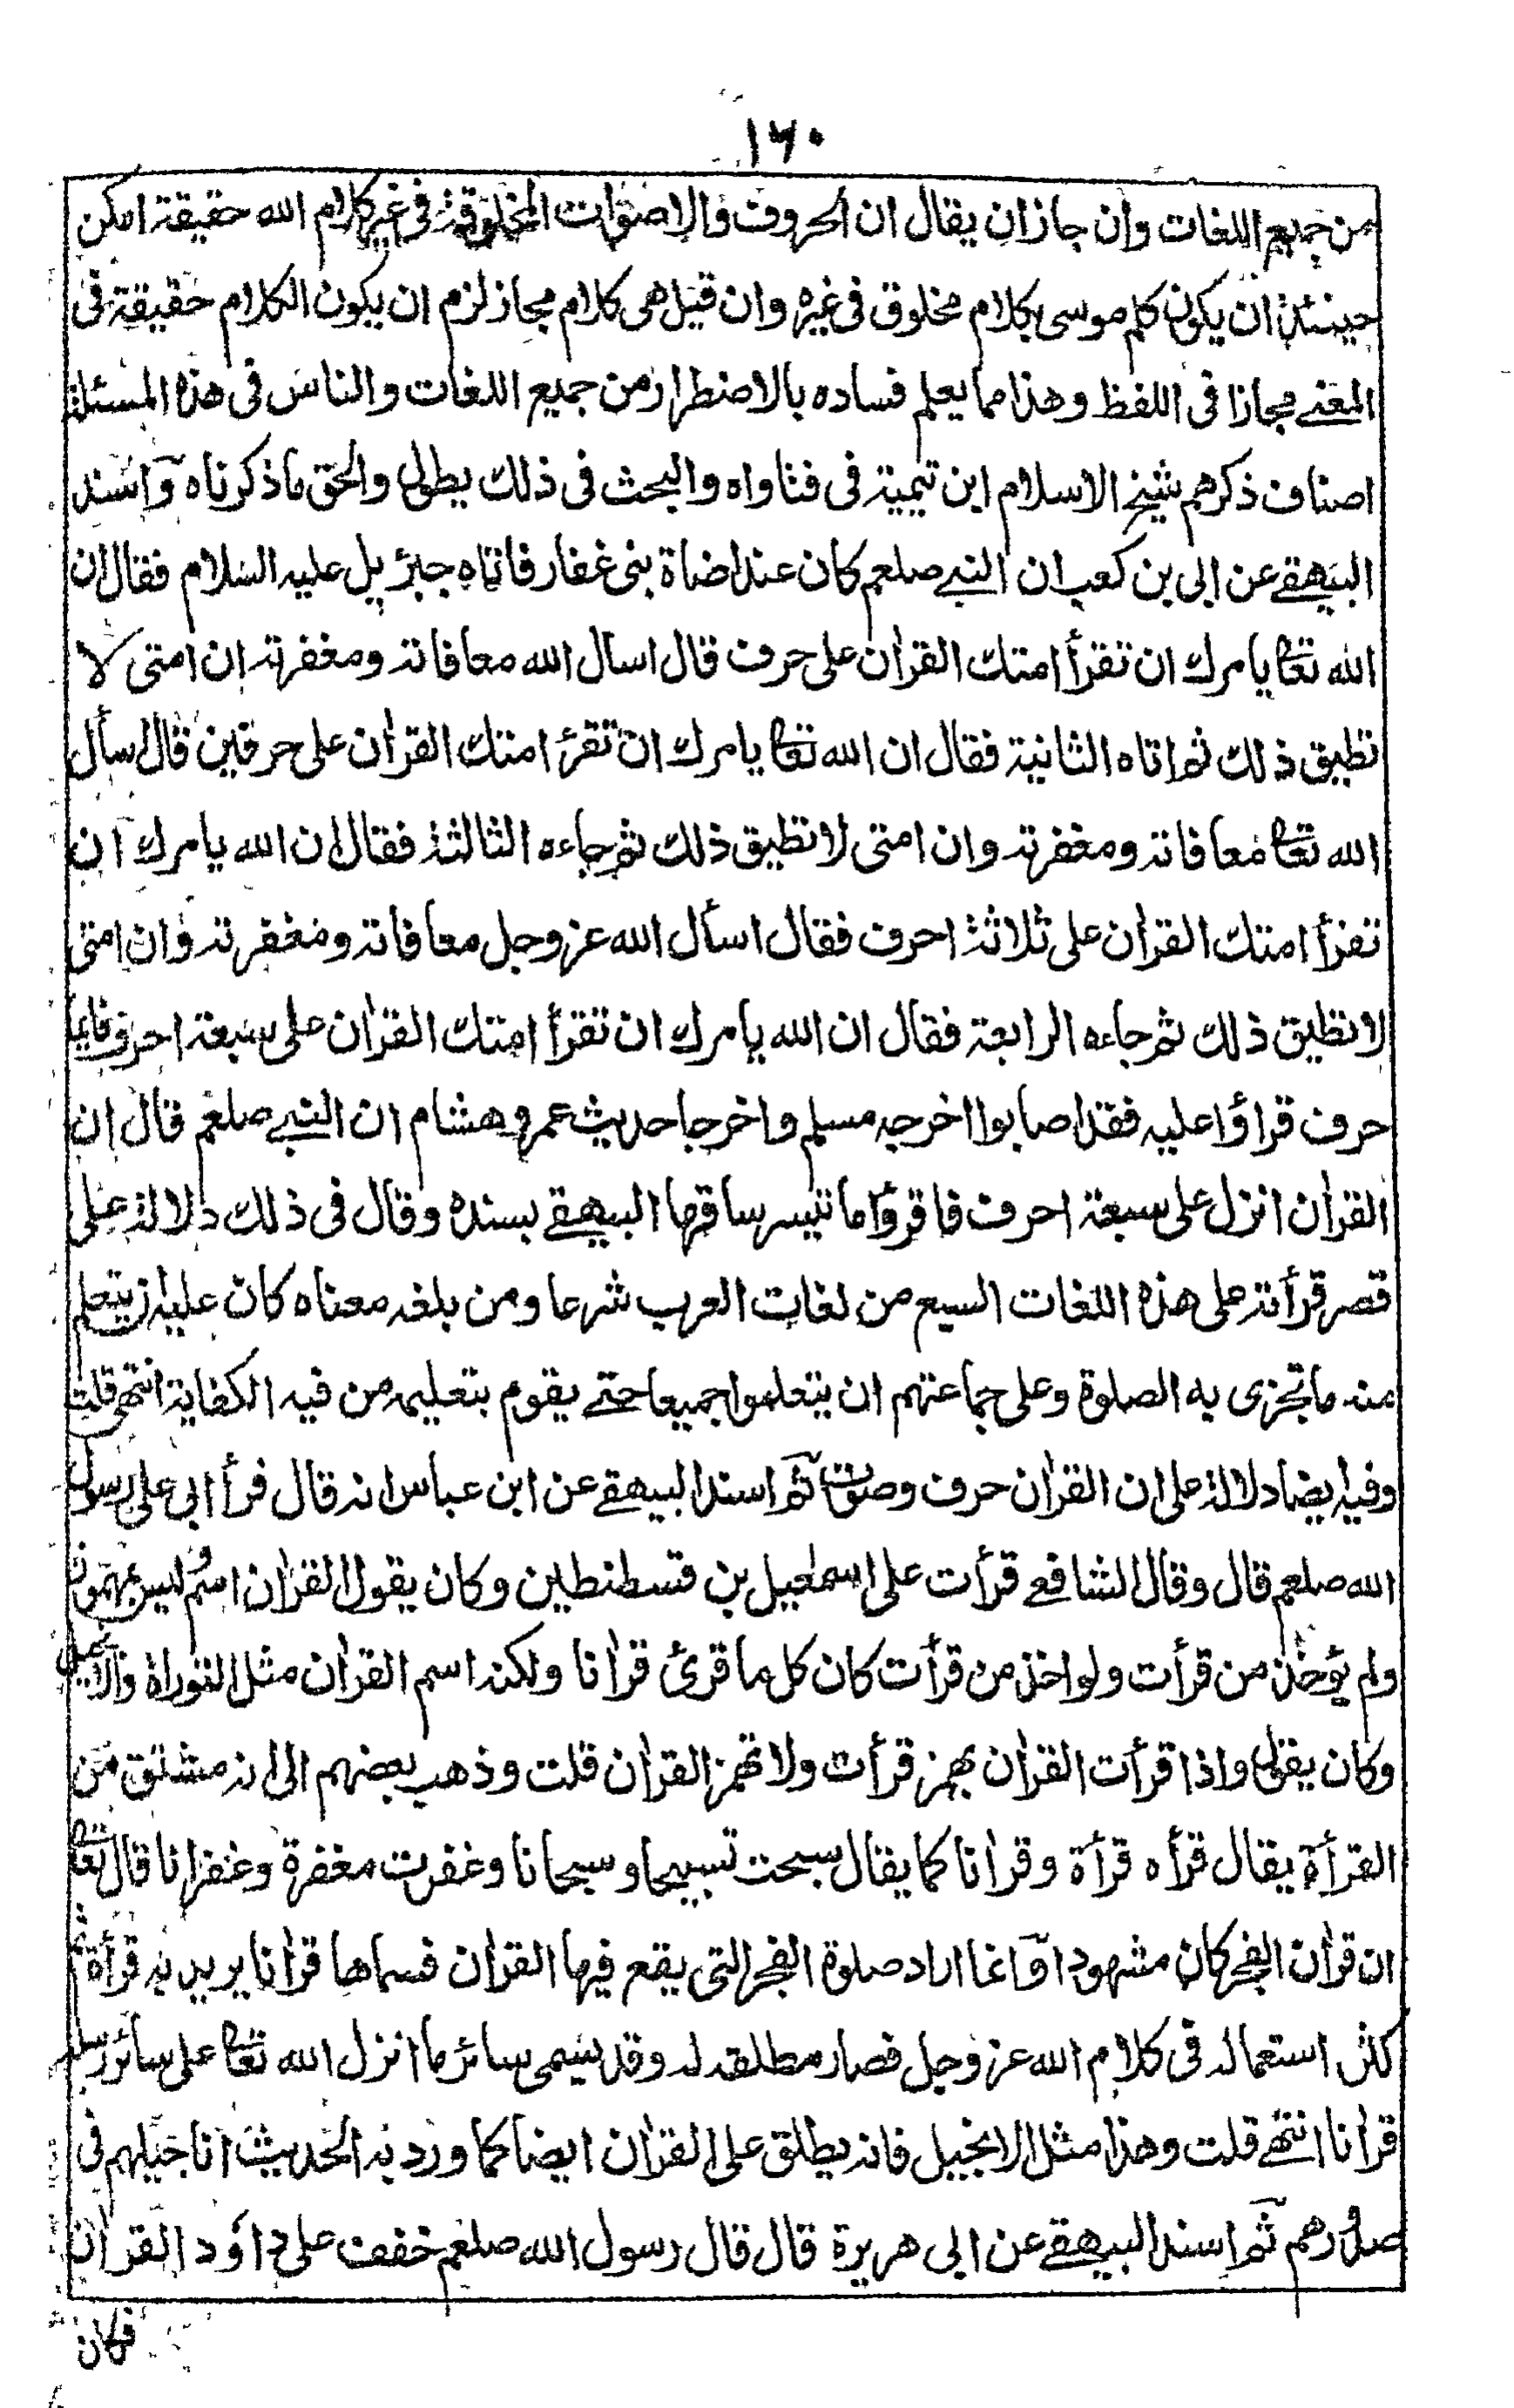 ١٦٠
من جميع اللغات وان جاز ان يقال ان الحروف والاصوات المخلوقة فى غير كلام الله حقيقة امكن
حينئذ ان يكون كلم موسى بكلام مخلوق فى غيره وان قيل هى كلام مجاز لزم ان يكون الكلام حقيقة فى
المعنے مجازا فى اللفظ وهذا مما يعلم فساده بالاضطرار من جميع اللغات والناس فى هذه المسئلة
اصناف ذكرهم شيخ الاسلام ابن تيمية فى فتاواه والبحث فى ذلك يطول والحق ما ذكرناه وآسند
البيهقے عن ابى بن كعب ان النبے صلعم كان عند اضاة بنى غفار فاتاه جبرئيل عليه السلام فقال ان
الله تعا يامرك ان تقرأ امتك القرآن على حرف قال اسال الله معافاته ومغفرته ان امتى لا
تطيق ذلك ثم اتاه الثانية فقال ان الله تعا يامرك ان تقرئ امتك القرآن على حرفين قال اسأل
الله تعا معافاته ومغفرته وان امتى لا تطيق ذلك ثم جاءه الثالثة فقال ان الله يامرك ان
تقرأ امتك القرآن على ثلاثة احرف فقال اسأل الله عز وجل معافاته ومغفرته وان امتى
لا تطيق ذلك ثم جاءه الرابعة فقال ان الله يامرك ان تقرأ امتك القرآن على سبعة احرف فايما
حرف قراؤا عليه فقد اصابوا اخرجه مسلم واخرجا حديث عمر وهشام ان النبے صلعم قال ان
القرآن انزل على سبعة احرف فاقرؤا ما تيسر ساقها البيهقے بسنده وقال فى ذلك دلالة على
قصر قرأته على هذه اللغات السبع من لغات العرب شرعا ومن بلغه معناه كان عليه ان يتعلم
منه ما تجزى به الصلوة وعلى جماعتهم ان يتعلموا جميعا حتے يقوم بتعليمه من فيه الكفاية انتهى قلت
وفيه ايضا دلالة على ان القرآن حرف وصوت ثم اسند البيهقے عن ابن عباس انه قال قرأ ابى على رسول
الله صلعم قال وقال الشافعے قرأت على اسمعيل بن قسطنطين وكان يقول القرآن اسم وليس بمهموز
ولم يؤخذ من قرأت ولو اخذ من قرأت كان كل ما قرئ قرآنا ولكنه اسم القرآن مثل التوراة والانجيل
وكان يقول واذا قرأت القرآن بهمز قرأت ولا تهمز القرآن قلت وذهب بعضهم الى انه مشتق من
القرأة يقال قرأه قرأة وقرآنا كما يقال سبحت تسبيحا وسبحانا وغفرت مغفرة وغفرانا قال تعا
ان قرآن الفجر كان مشهودا وآنما اراد صلوة الفجر التى يقع فيها القرآن فسماها قرآنا يريد به قرأة ثم
كثر استعماله فى كلام الله عز وجل فصار مطلقه له وقد يسمى سائر ما انزل الله تعا على سائر رسله
قرآنا انتهے قلت وهذا مثل الانجيل فانه يطلق على القرآن ايضا كما ورد به الحديث اناجيلهم فى
صدورهم ثم اسند البيهقے عن ابى هريرة قال قال رسول الله صلعم خففت على داؤد القرآن
فكان